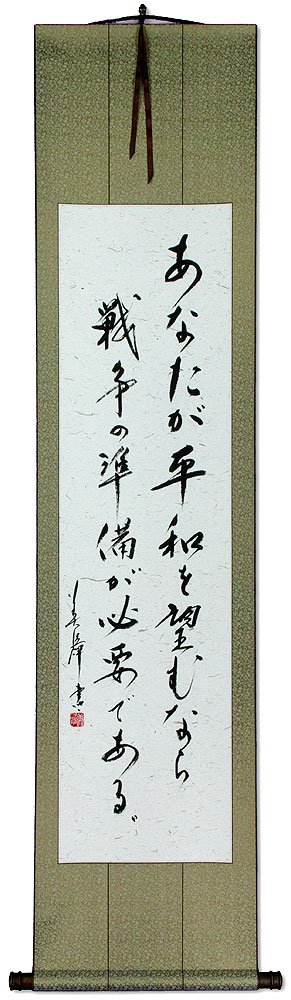 あなたが平和を望むなら
戦争の準備が必要である゛
書